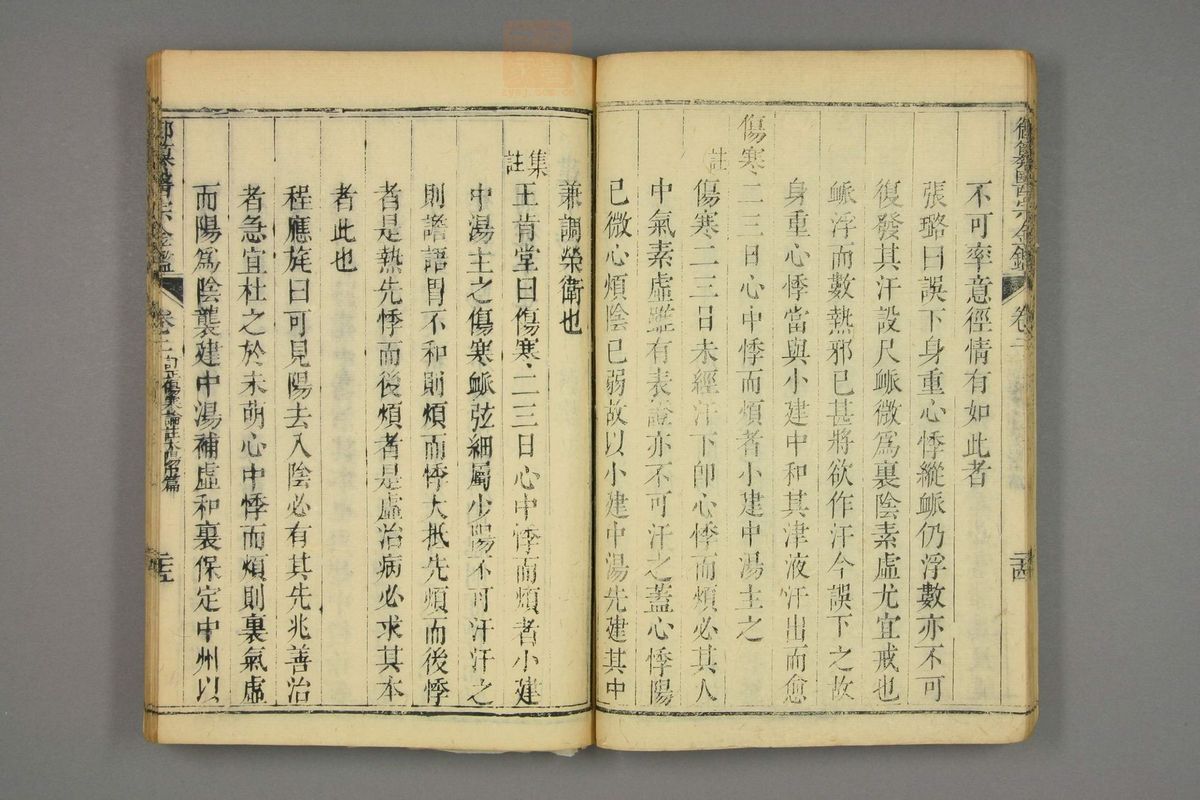 御纂醫宗金鑑 卷二 二十四
不可率意徑情有如此者
張璐曰誤下身重心悸縱脈仍浮數亦不可
復發其汗設尺脈微爲裏陰素虛尤宜戒也
脈浮而數熱邪已甚將欲作汗今誤下之故
身重心悸當與小建中和其津液汗出而愈
傷寒二三日心中悸而煩者小建中湯主之
註 傷寒二三日未經汗下卽心悸而煩必其人
中氣素虛雖有表證亦不可汗之蓋心悸陽
已微心煩陰已弱故以小建中湯先建其中
兼調榮衛也
集註 王肯堂曰傷寒二三日心中悸而煩者小建
中湯主之傷寒脈弦細屬少陽不可汗汗之
則譫語胃不和則煩而悸大抵先煩而後悸
者是熱先悸而後煩者是虛治病必求其本
者此也
程應旄曰可見陽去入陰必有其先兆善治
者急宜杜之於未萌心中悸而煩則裏氣虛
而陽爲陰襲建中湯補虛和裏保定中州以
御纂醫宗金鑑 卷二 訂正傷寒論註太陽中篇 二十五